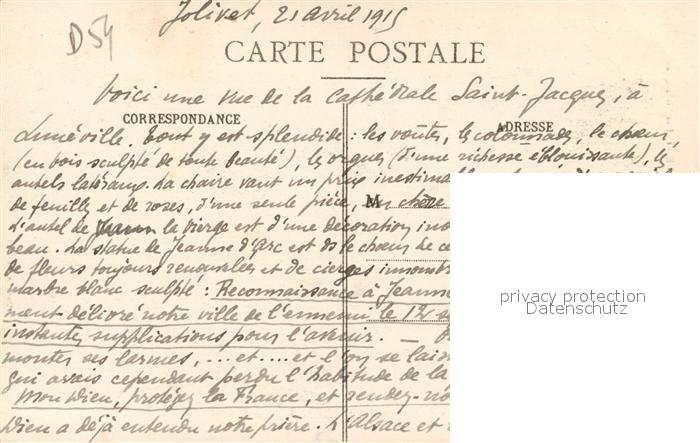 Jolivet, 21 avril 1915
D54
CARTE POSTALE
Voici une vue de la Cathédrale Saint-Jacques, à
CORRESPONDANCE
ADRESSE
Lunéville. Tout y est splendide : les voûtes, les colonnades, le chœur
(en bois sculpté de toute beauté), les orgues (d'une richesse éblouissante), les
autels latéraux. La chaire vaut un prix inestima
de feuilles et de roses, d'une seule pièce, M chêne
L'autel de la Vierge est d'une décoration ino
beau. La statue de Jeanne d'Arc est ds le chœur de ce
de fleurs toujours renouvelées et de cierges innomb
marbre blanc sculpté : Reconnaissance à Jeanne
ment délivré notre ville de l'ennemi le 12 se
instantes supplications pour l'avenir. —
monter ses larmes, ... et .... et l'on se lais
qui avais cependant perdu l'habitude de la
Mon Dieu, protégez la France, et rendez-no
Dieu a déjà entendu notre prière. L'Alsace et
privacy protection
Datenschutz